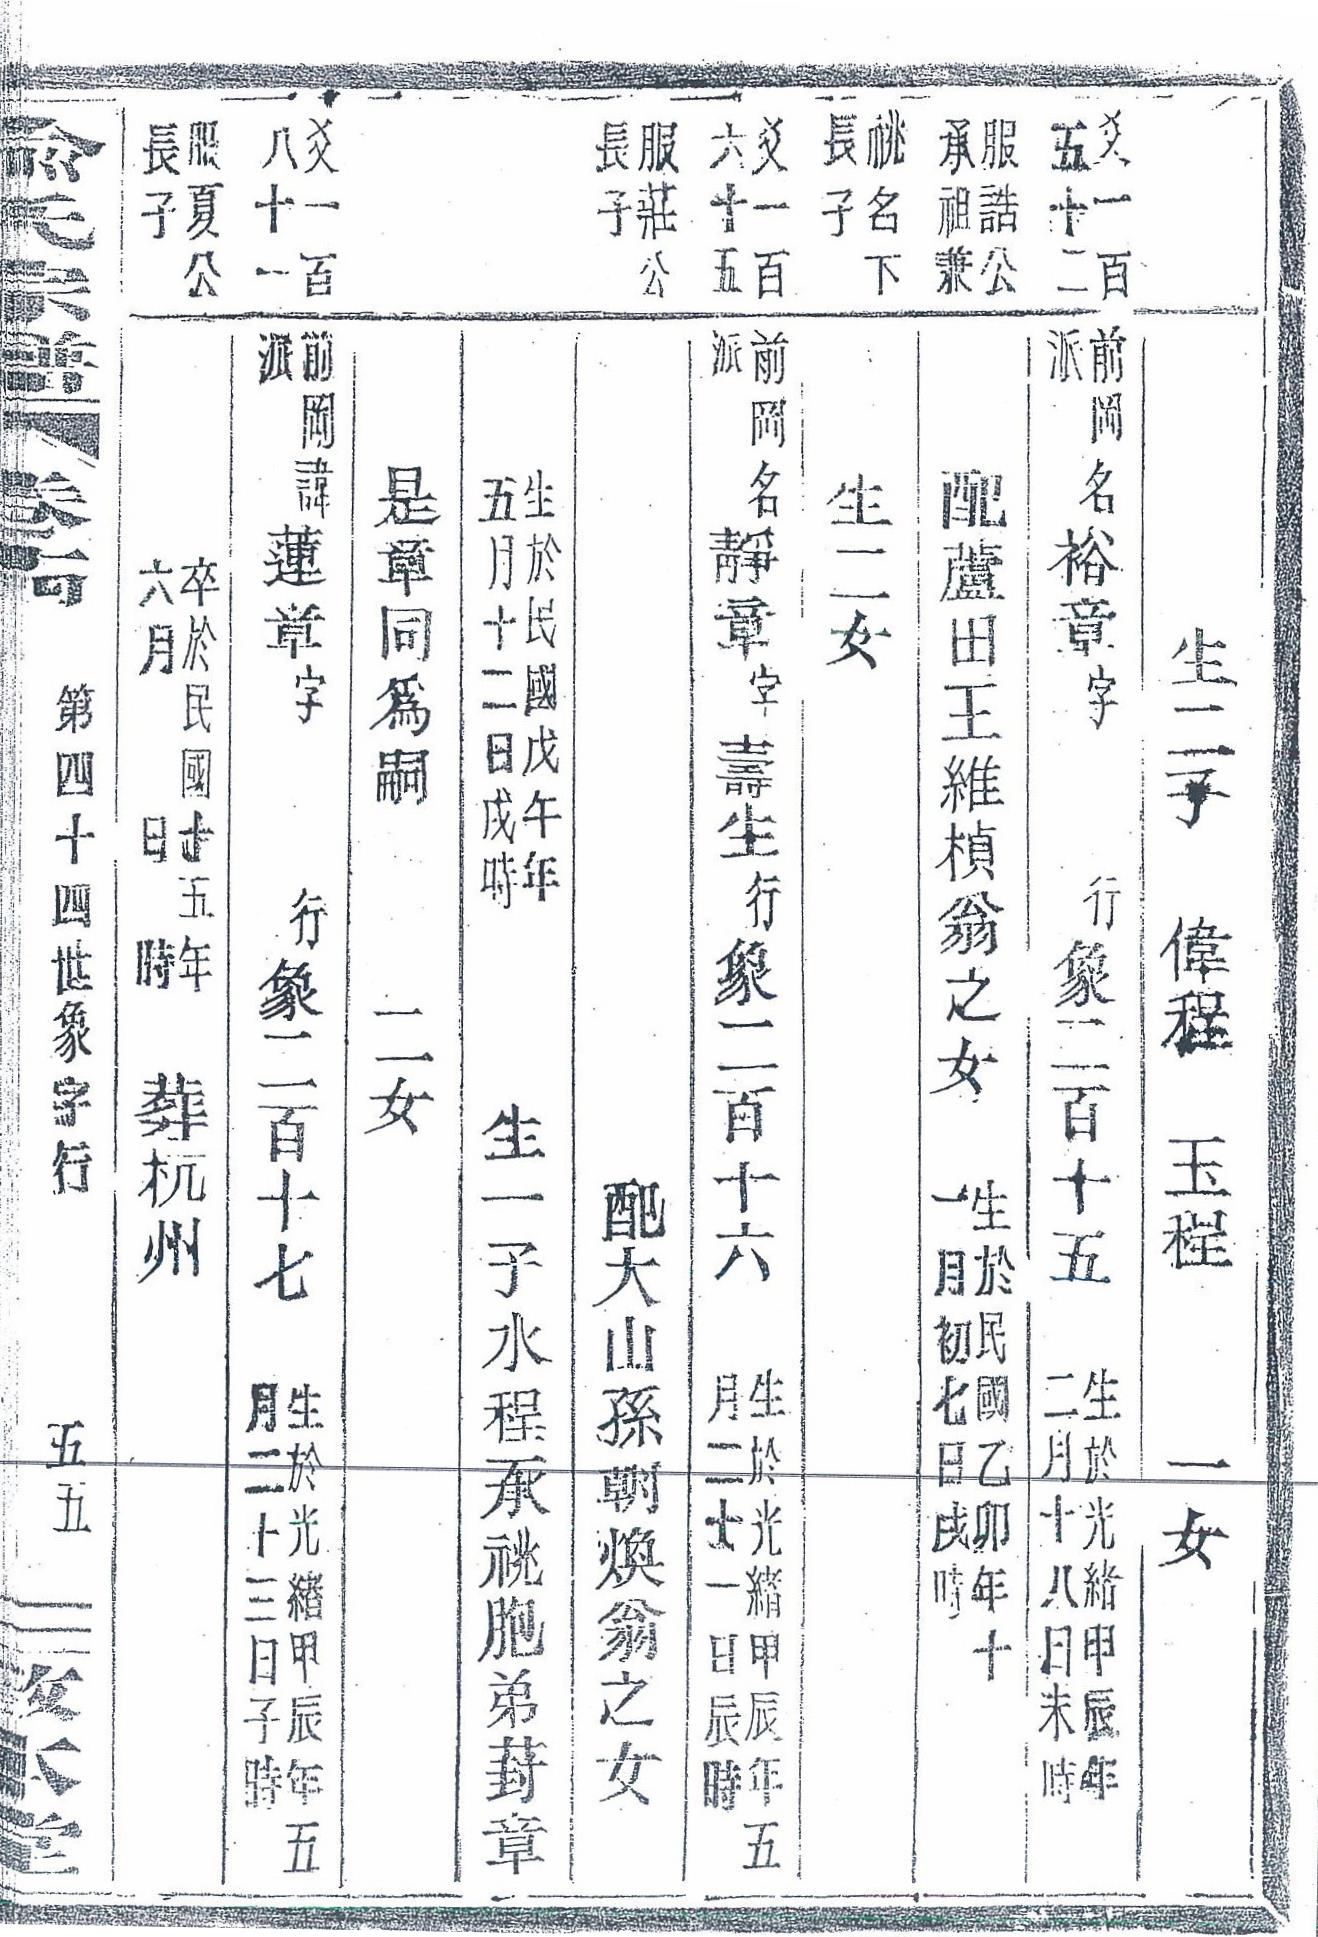 生二子　偉程　玉程　一女
爻一百五十二　前岡派名裕章字　行象二百十五　生於光緒甲辰年二月十八日未時
服誥公承祖兼　配蘆田王維楨翁之女　生於民國乙卯年十一月初七日戌時
祧名下長子　生二女
爻一百六十五　前岡派名靜章字壽生行象二百十六　生於光緒甲辰年五月二十一日辰時
服莊公長子　配大山孫朝煥翁之女
生於民國戊午年五月十二日戌時　生一子水程承祧胞弟葑章
是章同為嗣　二女
爻一百八十一　前岡派諱蓮章字　行象二百十七　生於光緒甲辰年五月二十三日子時
服夏公長子　卒於民國十五年六月　日　時　葬杭州
俞氏宗譜　卷　第四十四世象字行　五五